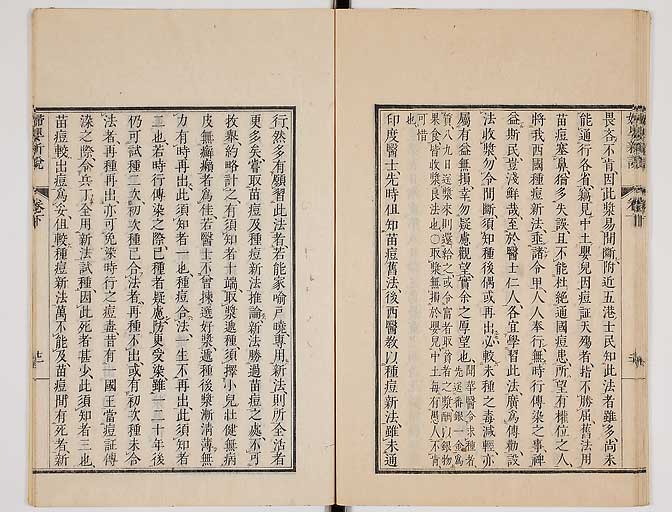 畏吝不肯因此漿易間斷附近五港士民知此法者雖多尚未
能通行各省竊見中土嬰兒因痘証夭殤者指不勝屈舊法用
苗痘塞鼻猶多失誤且不能杜絕通國痘患所望有權位之人
將我西國種痘新法垂諸令甲人人奉行無時行傳染之事裨
益斯民豈淺鮮哉至於醫士仁人各宜學習此法廣為傳勸設
法收漿勿令間斷須知種後偶或再出必較未種之毒減輕亦
屬有益無損幸勿疑慮觀望實余之厚望也
開華醫令求種者先送番銀一金為
質八九日送漿來則還給之或令富者取貧者之漿酬以銀物
果食皆收漿良法也○取漿無損於嬰兒中土每有愚人不肯
可惜也
印度醫士先時但知苗痘舊法後西醫教以種痘新法雖未通
婦嬰新說
行然多有願習此法者若能家喻戶曉專用新法則所全活者
更多矣嘗取苗痘及種痘新法推論新法勝過苗痘之處不可
枚舉約略計之有須知者十端取漿遞種須擇小兒壯健無病
皮無癬癩者為佳若醫士不曾揀選好漿遞種後漿漸清薄無
力有時再出此須知者一也種痘合法一生不再出此須知者
二也若時行傳染之際已種者疑慮防更受染雖一二十年後
仍可試種二次初次種已合法者再種不出或有初次種未合
法者再種再出亦可免染時行之痘毒昔有一國王當痘証傳
染之際令兵丁全用新法試種因此死者甚少此須知者三也
苗痘較出痘為安但較種痘新法萬不能及苗痘間有死者新
婦嬰新說